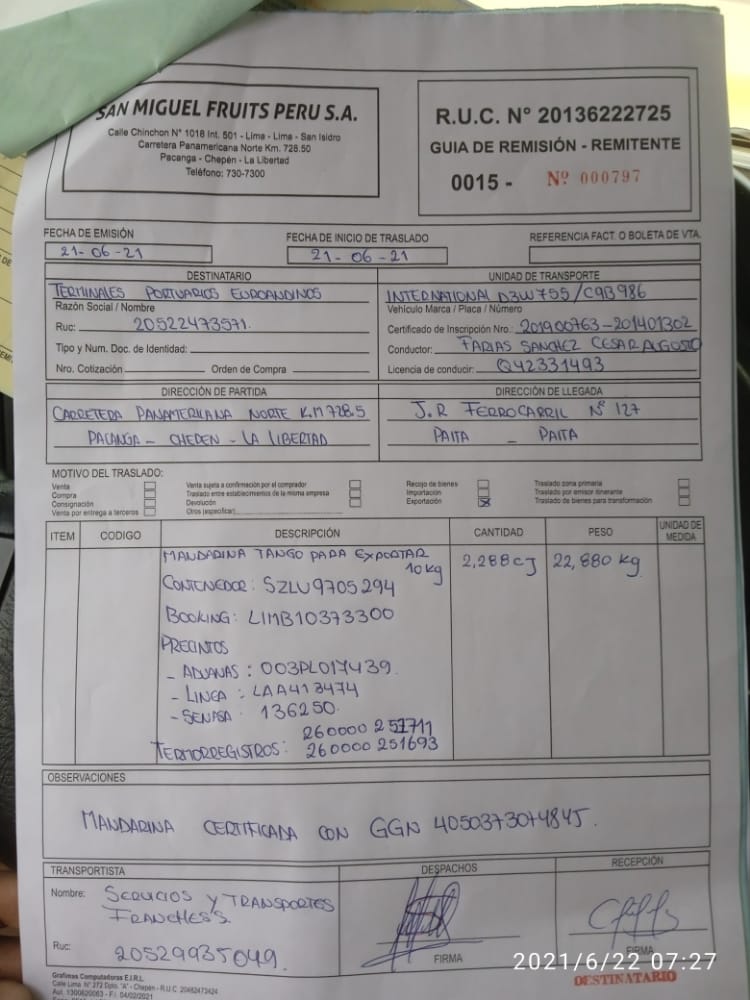 SAN MIGUEL FRUITS PERU S.A.
Calle Chinchon N° 1018 Int. 501 - Lima - Lima - San Isidro
Carretera Panamericana Norte Km. 728.50
Pacanga - Chepén - La Libertad
Teléfono: 730-7300
R.U.C. N° 20136222725
GUIA DE REMISIÓN - REMITENTE
0015 - Nº 000797
FECHA DE EMISIÓN
21-06-21
FECHA DE INICIO DE TRASLADO
21-06-21
REFERENCIA FACT. O BOLETA DE VTA.
DESTINATARIO
TERMINALES PORTUARIOS EUROANDINOS
Razón Social / Nombre
Ruc: 20522473571.
Tipo y Num. Doc. de Identidad:
Nro. Cotización Orden de Compra
UNIDAD DE TRANSPORTE
INTERNATIONAL D3W755/C9B986
Vehículo Marca / Placa / Número
Certificado de Inscripción Nro.: 201900763-201401302
Conductor: FARIAS SANCHEZ CESAR AUGOSTO
Licencia de conducir: Q42331493
DIRECCIÓN DE PARTIDA
CARRETERA PANAMERICANA NORTE K.M 728.5
PACANGA - CHEPEN - LA LIBERTAD
DIRECCIÓN DE LLEGADA
J.R FERROCARRIL Nº 127
PAITA - PAITA
MOTIVO DEL TRASLADO:
Venta
Compra
Consignación
Venta por entrega a terceros
Venta sujeta a confirmación por el comprador
Traslado entre establecimientos de la misma empresa
Devolución
Otros (especificar)
Recojo de bienes
Importación
Exportación
Traslado zona primaria
Traslado por emisor itinerante
Traslado de bienes para transformación
ITEM CODIGO DESCRIPCIÓN CANTIDAD PESO UNIDAD DE MEDIDA
MANDARINA TANGO PARA EXPORTAR 2,288CJ 22,880 kg
10kg
CONTENEDOR: SZLU9705294
BOOKING: LIMB10373300
PRECINTOS
- ADUANAS: 003PL017439.
- LINEA: LAA413474
- SENASA: 136250.
260000 251711
TERMORREGISTROS: 260000 251693
OBSERVACIONES
MANDARINA CERTIFICADA CON GGN 4050373074845.
TRANSPORTISTA
Nombre: SERVICIOS Y TRANSPORTES
FRANCHESS
Ruc: 20529935049.
DESPACHOS
FIRMA
RECEPCIÓN
FIRMA
DESTINATARIO
Grafimas Computadoras E.I.R.L.
Calle Lima N° 272 Dpto. "A" - Chepén - R.U.C 20482473424
Aut. 1300620063 - F.I. 04/02/2021
2021/6/22 07:27